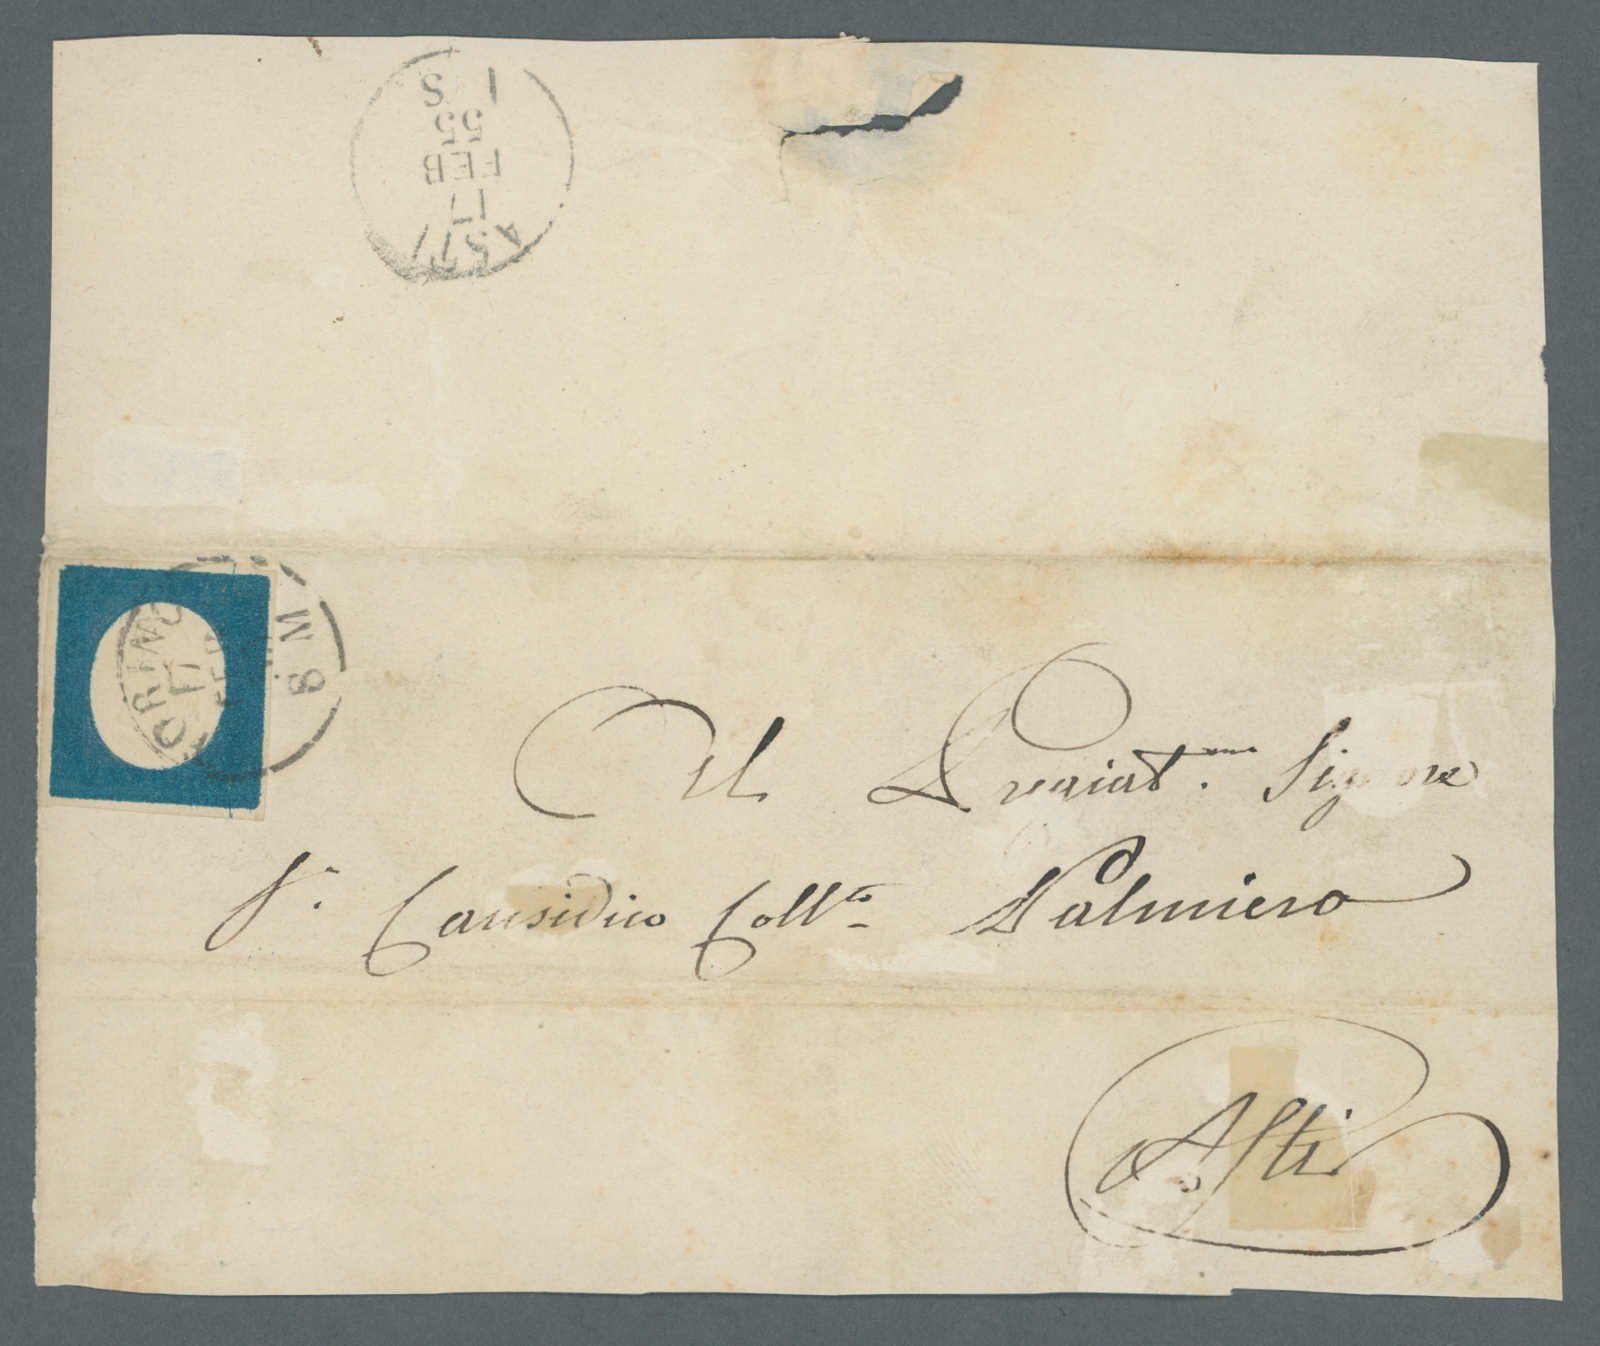 ASTI
17
FEB
55
1 S
TORINO
17
FEB
8 M
Al Pregiat.mo Signore
Sr. Causidico Coll.to Palmiero
Asti